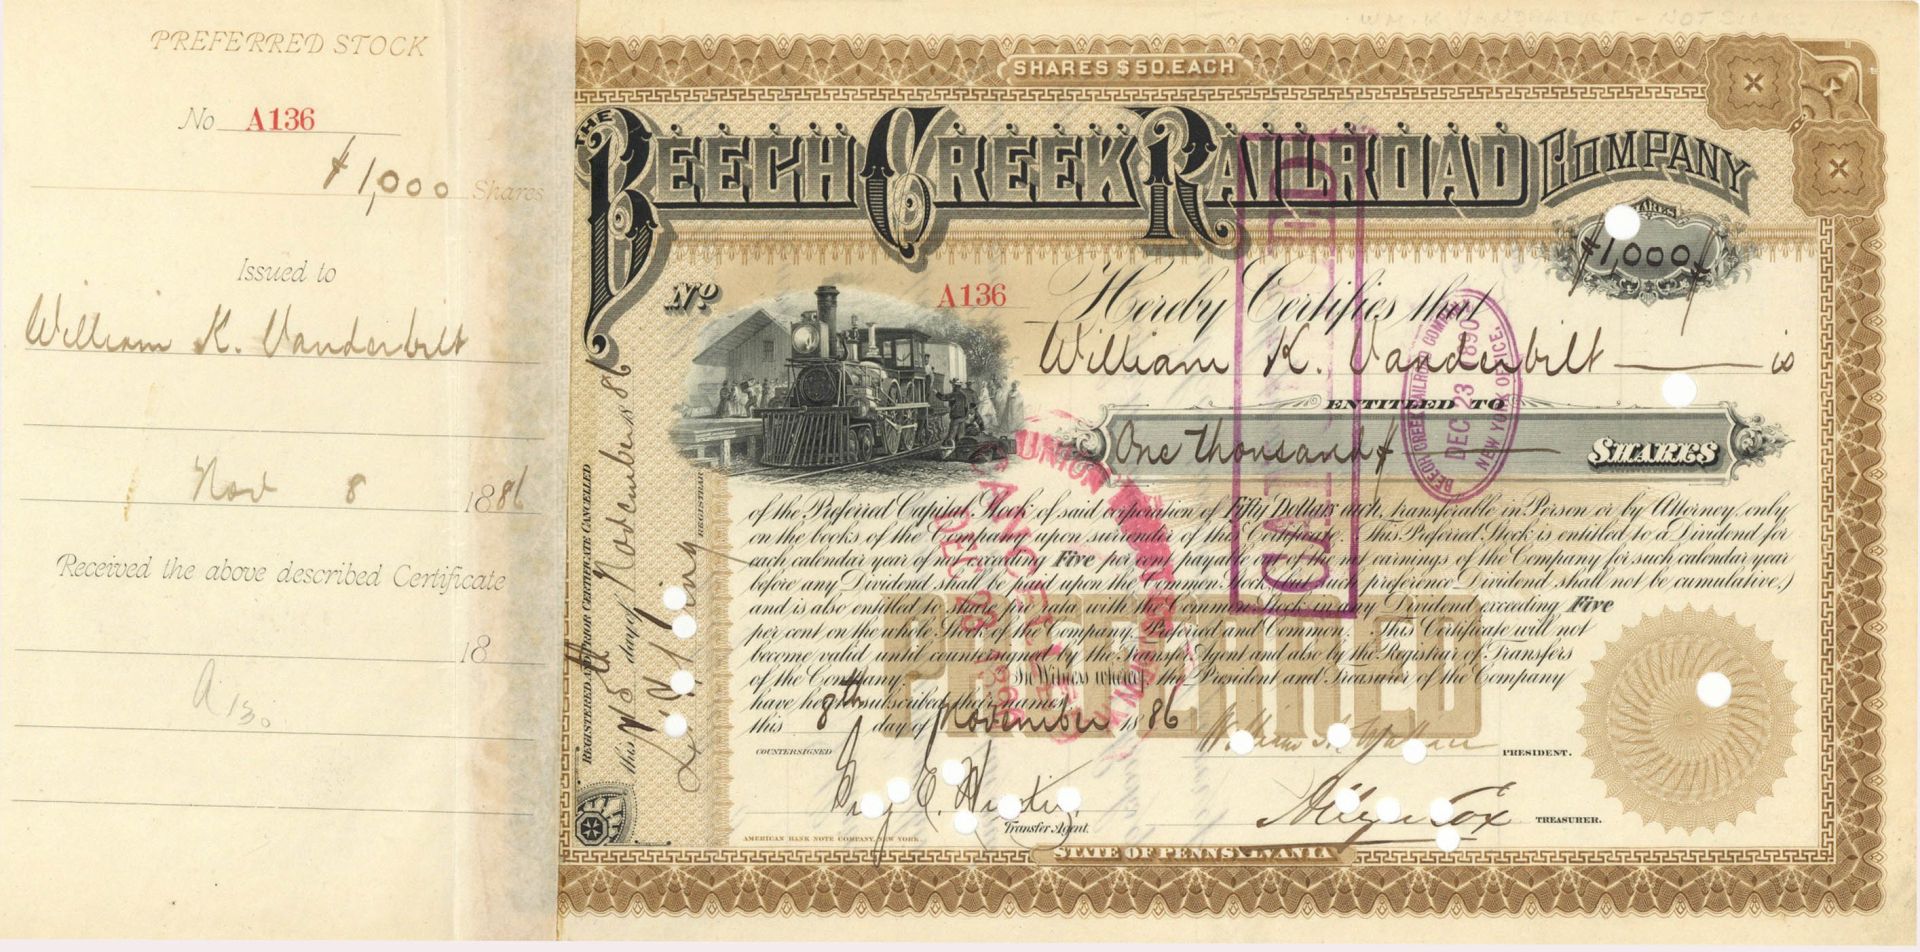 PREFERRED STOCK
No A136
1,000 Shares
Issued to
William K. Vanderbilt
Nov 8 1886
Received the above described Certificate
18
A130
WM. K. VANDERBILT - NOT SIGNED
SHARES $50. EACH
THE BEECH CREEK RAILROAD COMPANY
SHARES
1,000
No A136
Hereby Certifies that
William K. Vanderbilt is
ENTITLED TO
One thousand SHARES
of the Preferred Capital Stock of said corporation of Fifty Dollars each, transferable in Person or by Attorney, only
on the books of the Company upon surrender of this Certificate. This Preferred Stock is entitled to a Dividend for
each calendar year of not exceeding Five per cent payable out of the net earnings of the Company for such calendar year
before any Dividend shall be paid upon the Common Stock, but such preference Dividend shall not be cumulative,)
and is also entitled to share pro rata with the Common Stock in any Dividend exceeding Five
per cent on the whole Stock of the Company, Preferred and Common. This Certificate will not
become valid until countersigned by the Transfer Agent and also by the Registrar of Transfers
of the Company. In Witness whereof, the President and Treasurer of the Company
have hereto subscribed their names
this 8th day of November 1886
PREFERRED
COUNTERSIGNED
PRESIDENT.
Transfer Agent.
TREASURER.
AMERICAN BANK NOTE COMPANY, NEW YORK.
STATE OF PENNSYLVANIA
REGISTERED AND PRIOR CERTIFICATE CANCELLED
this 15th day of November 1886
REGISTRAR
CANCELLED
BEECH CREEK RAILROAD COMPANY
DEC 23 1890
NEW YORK OFFICE.
UNION
CANCELLED
DEC 23